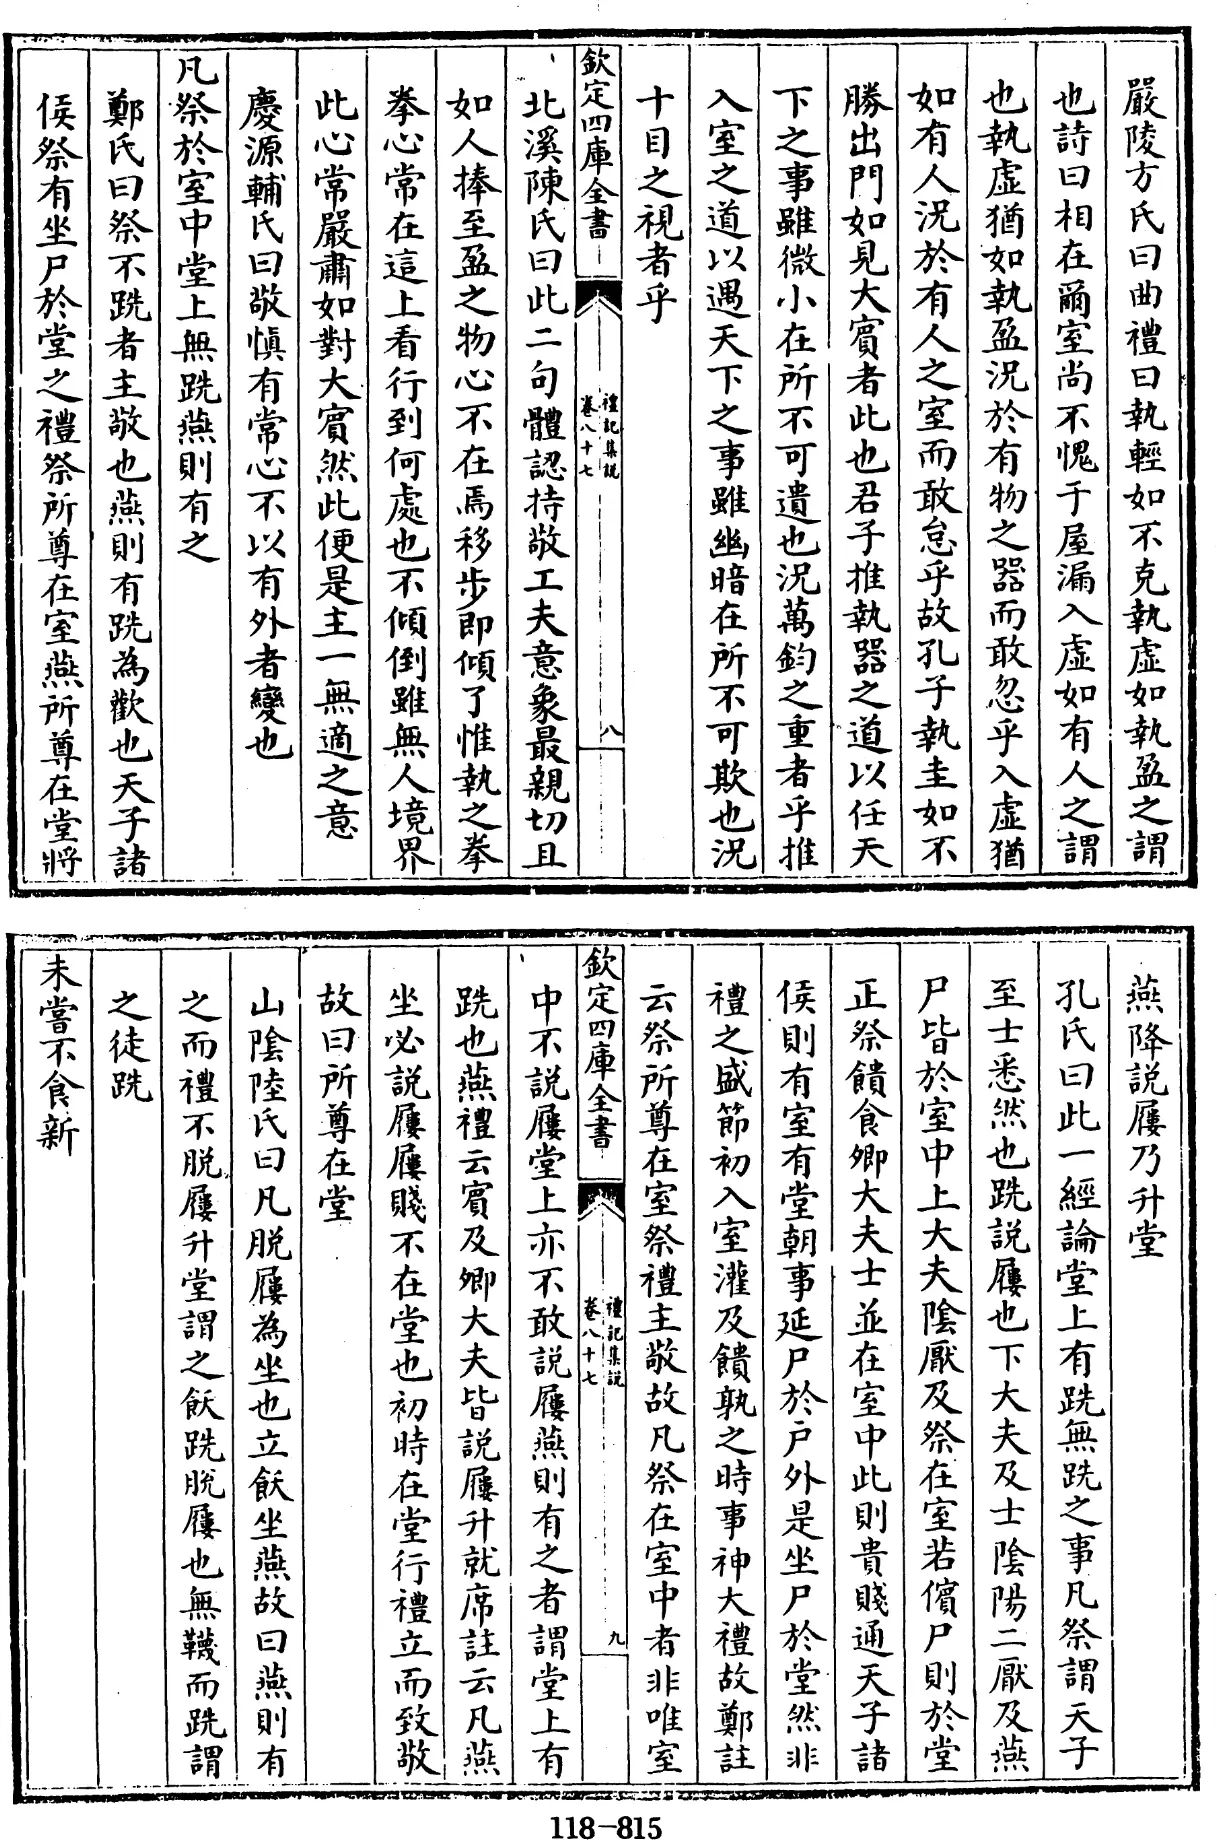 嚴陵方氏曰曲禮曰執輕如不克執虛如執盈之謂
也詩曰相在爾室尚不愧于屋漏入虛如有人之謂
也執虛猶如執盈況於有物之器而敢忽乎入虛猶
如有人況於有人之室而敢怠乎故孔子執圭如不
勝出門如見大賓者此也君子推執器之道以任天
下之事雖微小在所不可遺也況萬鈞之重者乎推
入室之道以遇天下之事雖幽暗在所不可欺也況
十目之視者乎
欽定四庫全書
禮記集說
卷八十七
八
北溪陳氏曰此二句體認持敬工夫意象最親切且
如人捧至盈之物心不在焉移步即傾了惟執之拳
拳心常在這上看行到何處也不傾倒雖無人境界
此心常嚴肅如對大賓然此便是主一無適之意
慶源輔氏曰敬慎有常心不以有外者變也
凡祭於室中堂上無跣燕則有之
鄭氏曰祭不跣者主敬也燕則有跣為歡也天子諸
侯祭有坐尸於堂之禮祭所尊在室燕所尊在堂將
燕降説屨乃升堂
孔氏曰此一經論堂上有跣無跣之事凡祭謂天子
至士悉然也跣説屨也下大夫及士陰陽二厭及燕
尸皆於室中上大夫陰厭及祭在室若儐尸則於堂
正祭饋食卿大夫士並在室中此則貴賤通天子諸
侯則有室有堂朝事延尸於戶外是坐尸於堂然非
禮之盛節初入室灌及饋孰之時事神大禮故鄭註
云祭所尊在室祭禮主敬故凡祭在室中者非唯室
欽定四庫全書
禮記集說
卷八十七
九
中不説屨堂上亦不敢説屨燕則有之者謂堂上有
跣也燕禮云賓及卿大夫皆説屨升就席註云凡燕
坐必説屨屨賤不在堂也初時在堂行禮立而致敬
故曰所尊在堂
山陰陸氏曰凡脱屨為坐也立飫坐燕故曰燕則有
之而禮不脱屨升堂謂之飫跣脱屨也無韤而跣謂
之徒跣
未嘗不食新
118-815